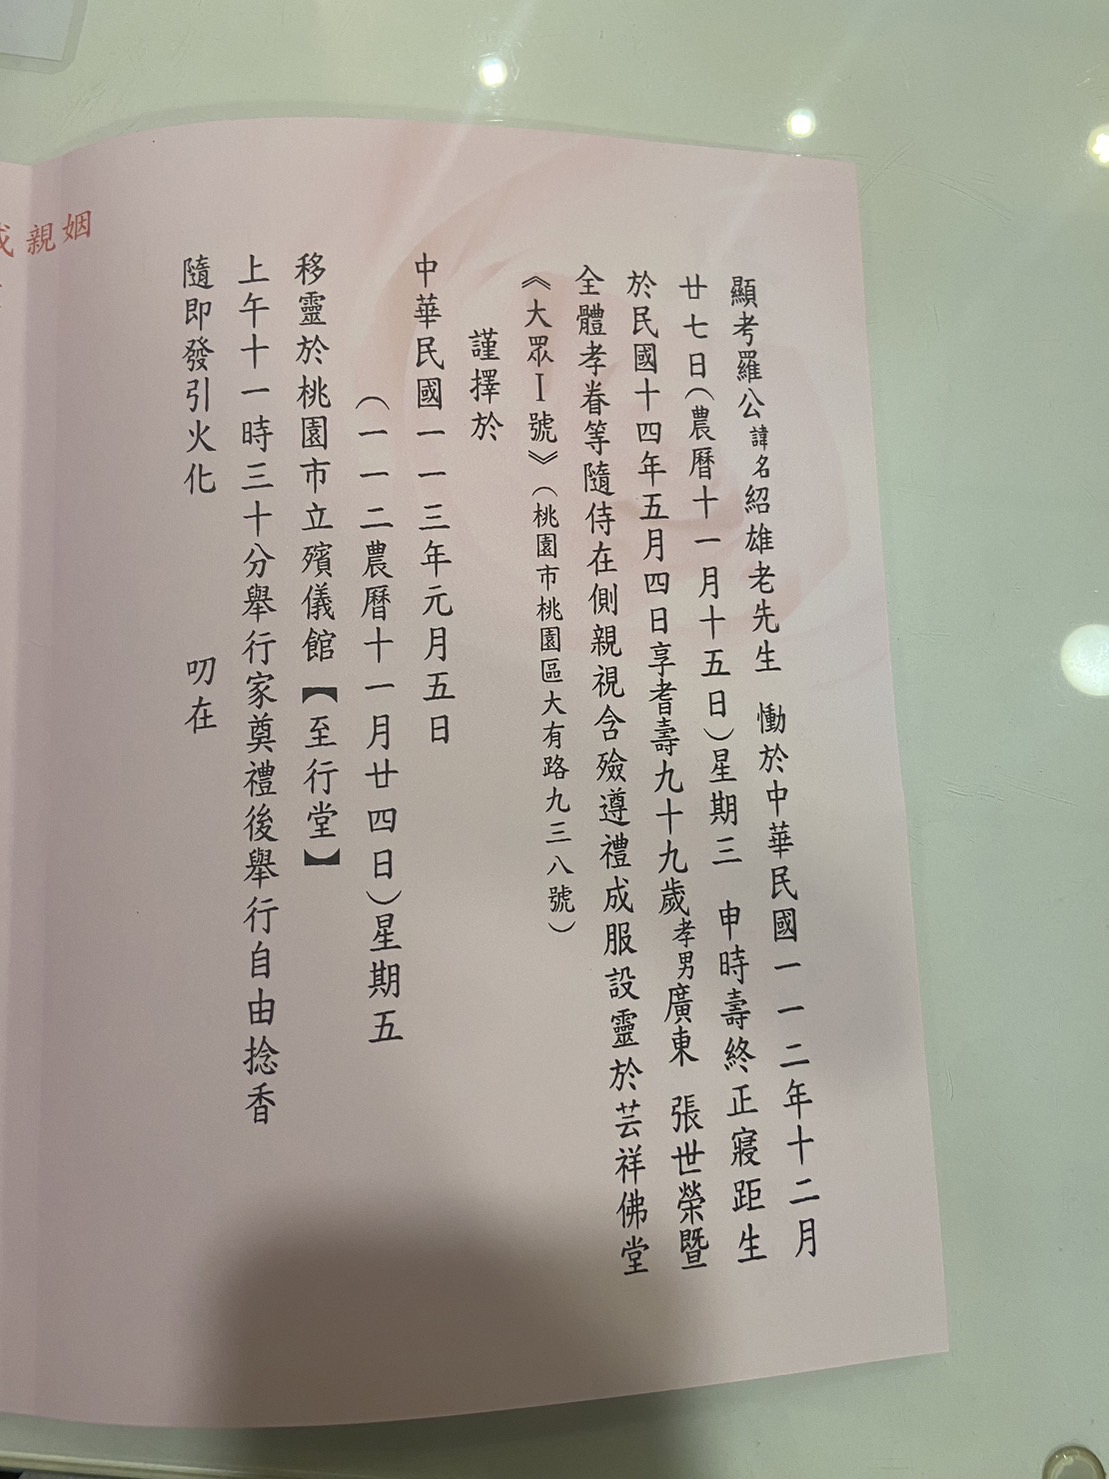 顯考羅公諱名紹雄老先生 慟於中華民國一一二年十二月
廿七日(農曆十一月十五日)星期三 申時壽終正寢距生
於民國十四年五月四日享耆壽九十九歲孝男廣東 張世榮暨
全體孝眷等隨侍在側親視含殮遵禮成服設靈於芸祥佛堂
《大眾I號》(桃園市桃園區大有路九三八號)
謹擇於
中華民國一一三年元月五日
(一一二農曆十一月廿四日)星期五
移靈於桃園市立殯儀館【至行堂】
上午十一時三十分舉行家奠禮後舉行自由捻香
隨即發引火化 叨在
姻
親